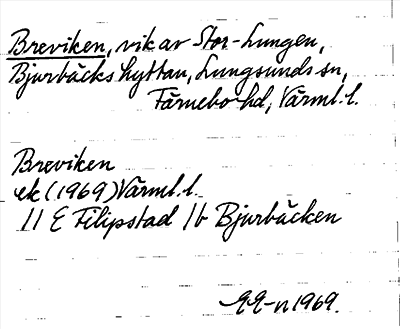 Breviken, vik av Stor-Lungen,
Bjurbäckshyttan, Lungsunds sn,
Färnebo hd, Värml. l.
Breviken
ek (1969) Värml. l.
11 E Filipstad 1b Bjurbäcken
1969.